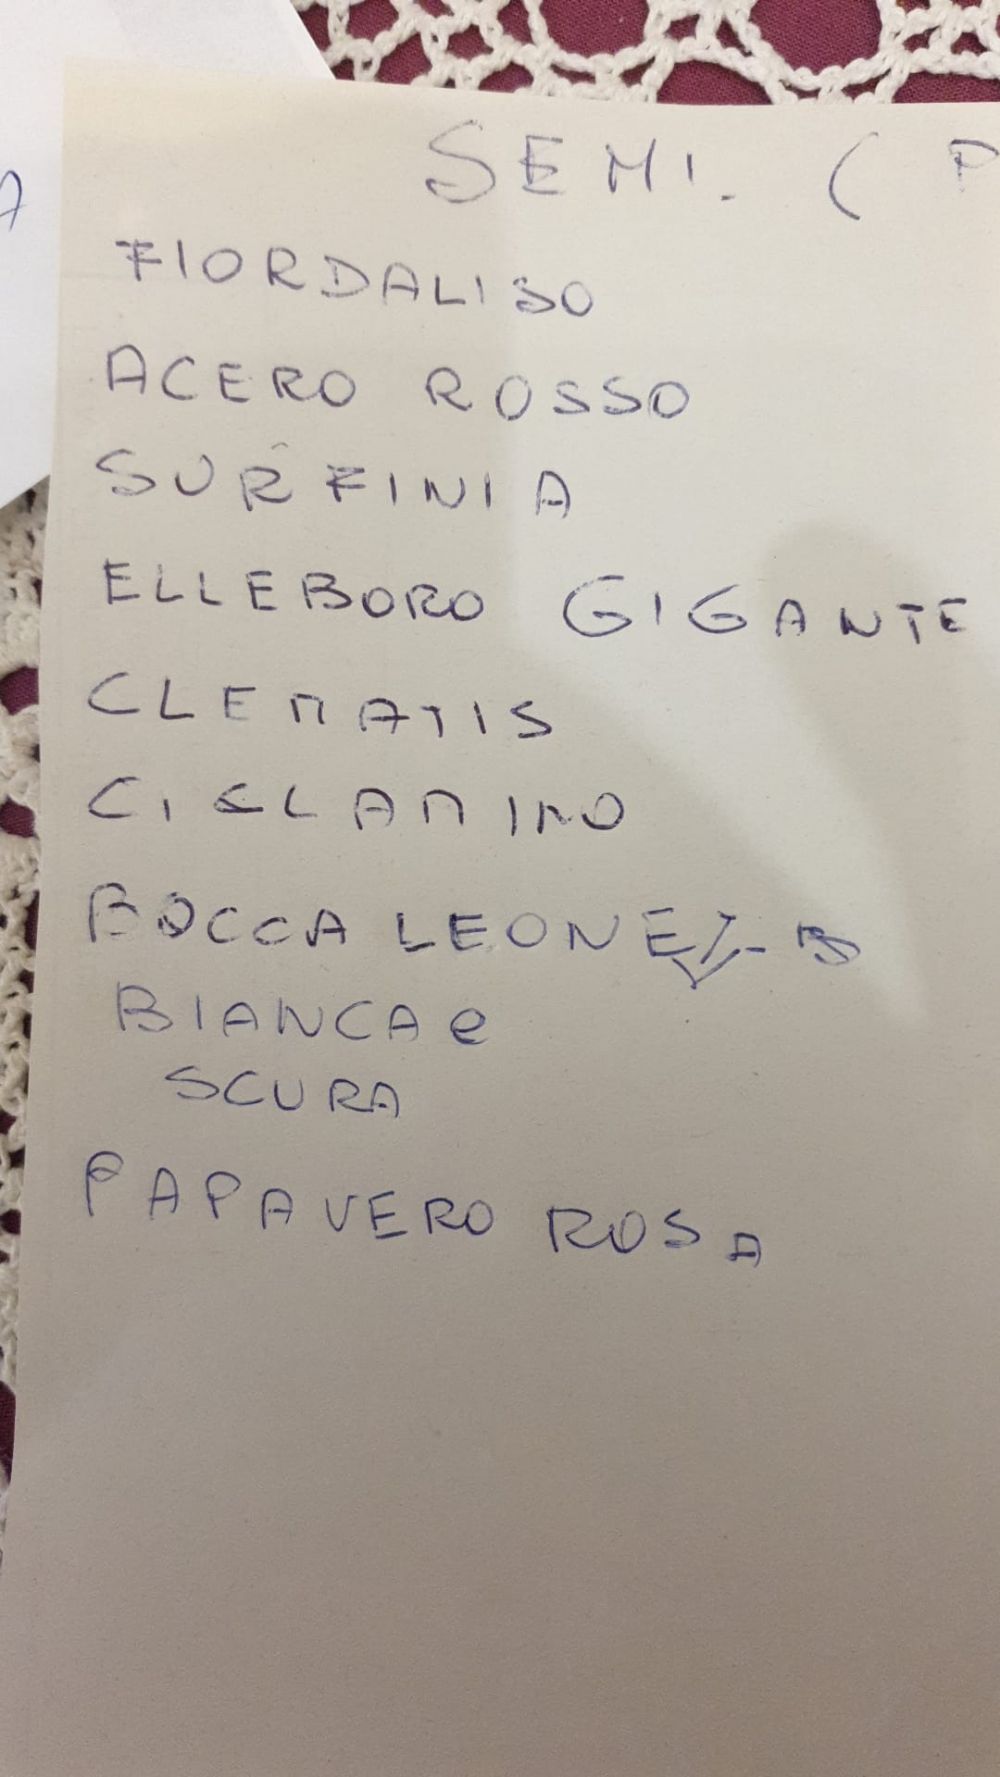 SEMI. ( P
A
FIORDALISO
ACERO ROSSO
SURFINIA
ELLEBORO GIGANTE
CLEMATIS
CICLAMINO
BOCCA LEONE - B
BIANCA e
SCURA
PAPAVERO ROSA